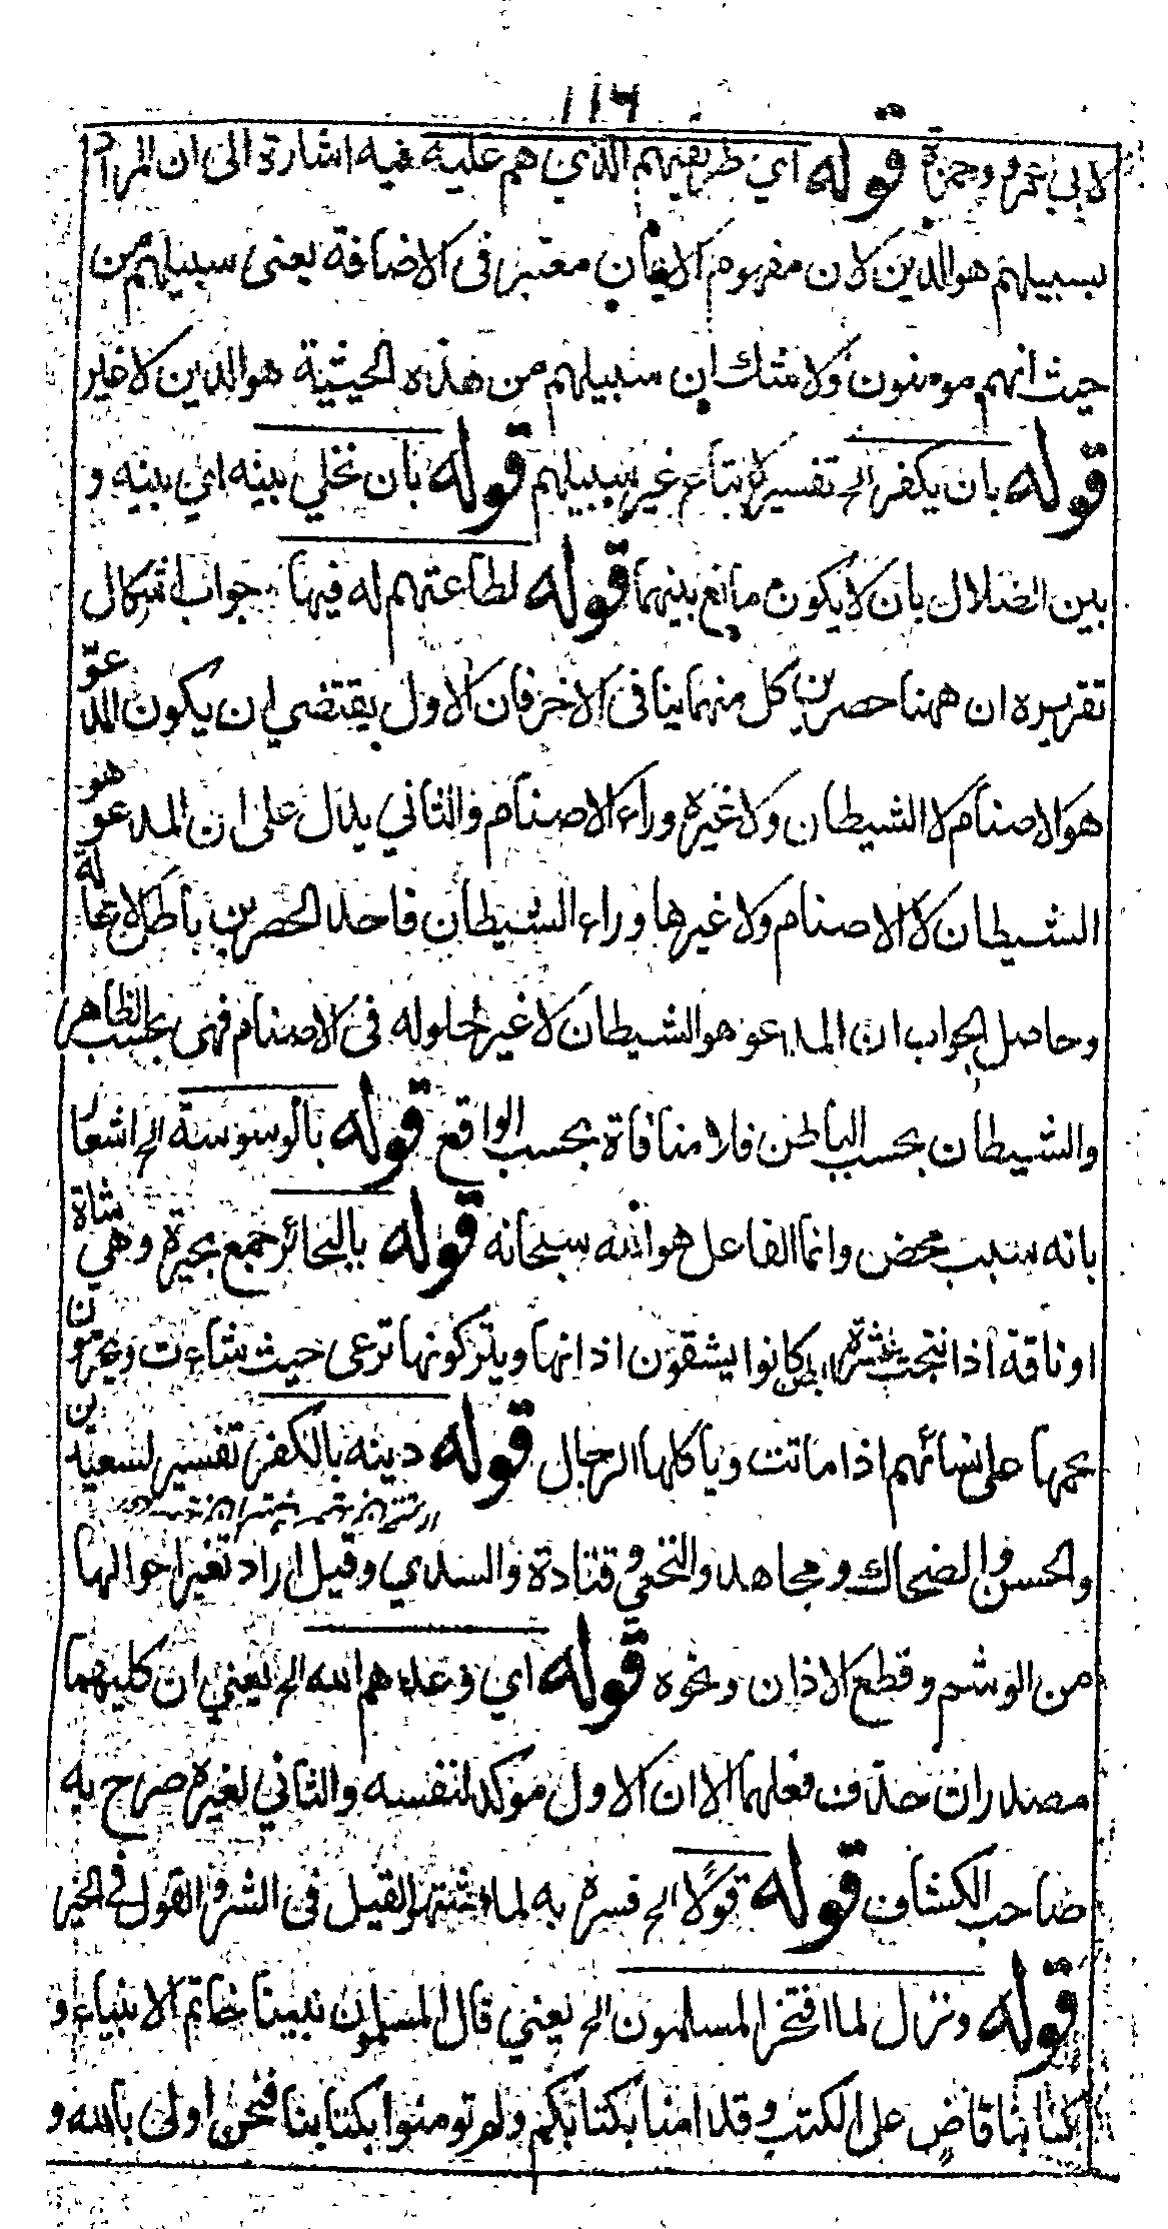 ١١٦
لابي عمرو وحمزة قوله اي طريقهم الذي هم عليه فيه اشارة الى ان المراد
بسبيلهم هو الدين لان مفهوم الايمان معتبر فى الاضافة يعنى سبيلهم من
حيث انهم مومنون ولا شك ان سبيلهم من هذه الحيثية هو الدين لا غير
قوله بان يكفر الخ تفسير لاتباع غير سبيلهم قوله بان نخلي بينه اي بينه و
بين الضلال بان لا يكون مانع بينهما قوله لطاعتهم له فيها جواب اشكال
تقريره ان ههنا حصرين كل منهما ينافى الاخر فان الاول يقتضي ان يكون المدعوّ
هو الاصنام لا الشيطان ولا غيره وراء الاصنام والثاني يدل على ان المدعو هو
الشيطان لا الاصنام ولا غيرها وراء الشيطان فاحد الحصرين باطل لا محالة
وحاصل الجواب ان المدعو هو الشيطان لا غير لحلوله فى الاصنام فهى بحسب الظاهر
والشيطان بحسب الباطن فلا منافاة بحسب الواقع قوله بالوسوسة الخ اشعار
بانه سبب محض وانما الفاعل هو الله سبحانه قوله بالبحائر جمع بحيرة وهي شاة
او ناقة اذا نتجت عشرة ابطن كانوا يشقون اذانها ويتركونها ترعى حيث شاءت ويحرمون
لحمها على نسائهم اذا ماتت وياكلها الرجال قوله دينه بالكفر تفسير لسعيد بن
والحسن والضحاك ومجاهد والنخعي وقتادة والسدي وقيل اراد تغير احوالها
من الوشم وقطع الاذان ونحوه قوله اي وعدهم الله الخ يعني ان كليهما
مصدران حذف فعلهما الا ان الاول موكد لنفسه والثاني لغيره صرح به
صاحب الكشاف قوله قولًا الخ فسره به لما اشتهر القيل فى الشر والقول فى الخير
قوله ونزل لما افتخر المسلمون الخ يعني قال المسلمون نبينا خاتم الانبياء و
كتابنا قاضٍ على الكتب وقد امنا بكتابكم ولم تومنوا بكتابنا فنحن اولى بالله و